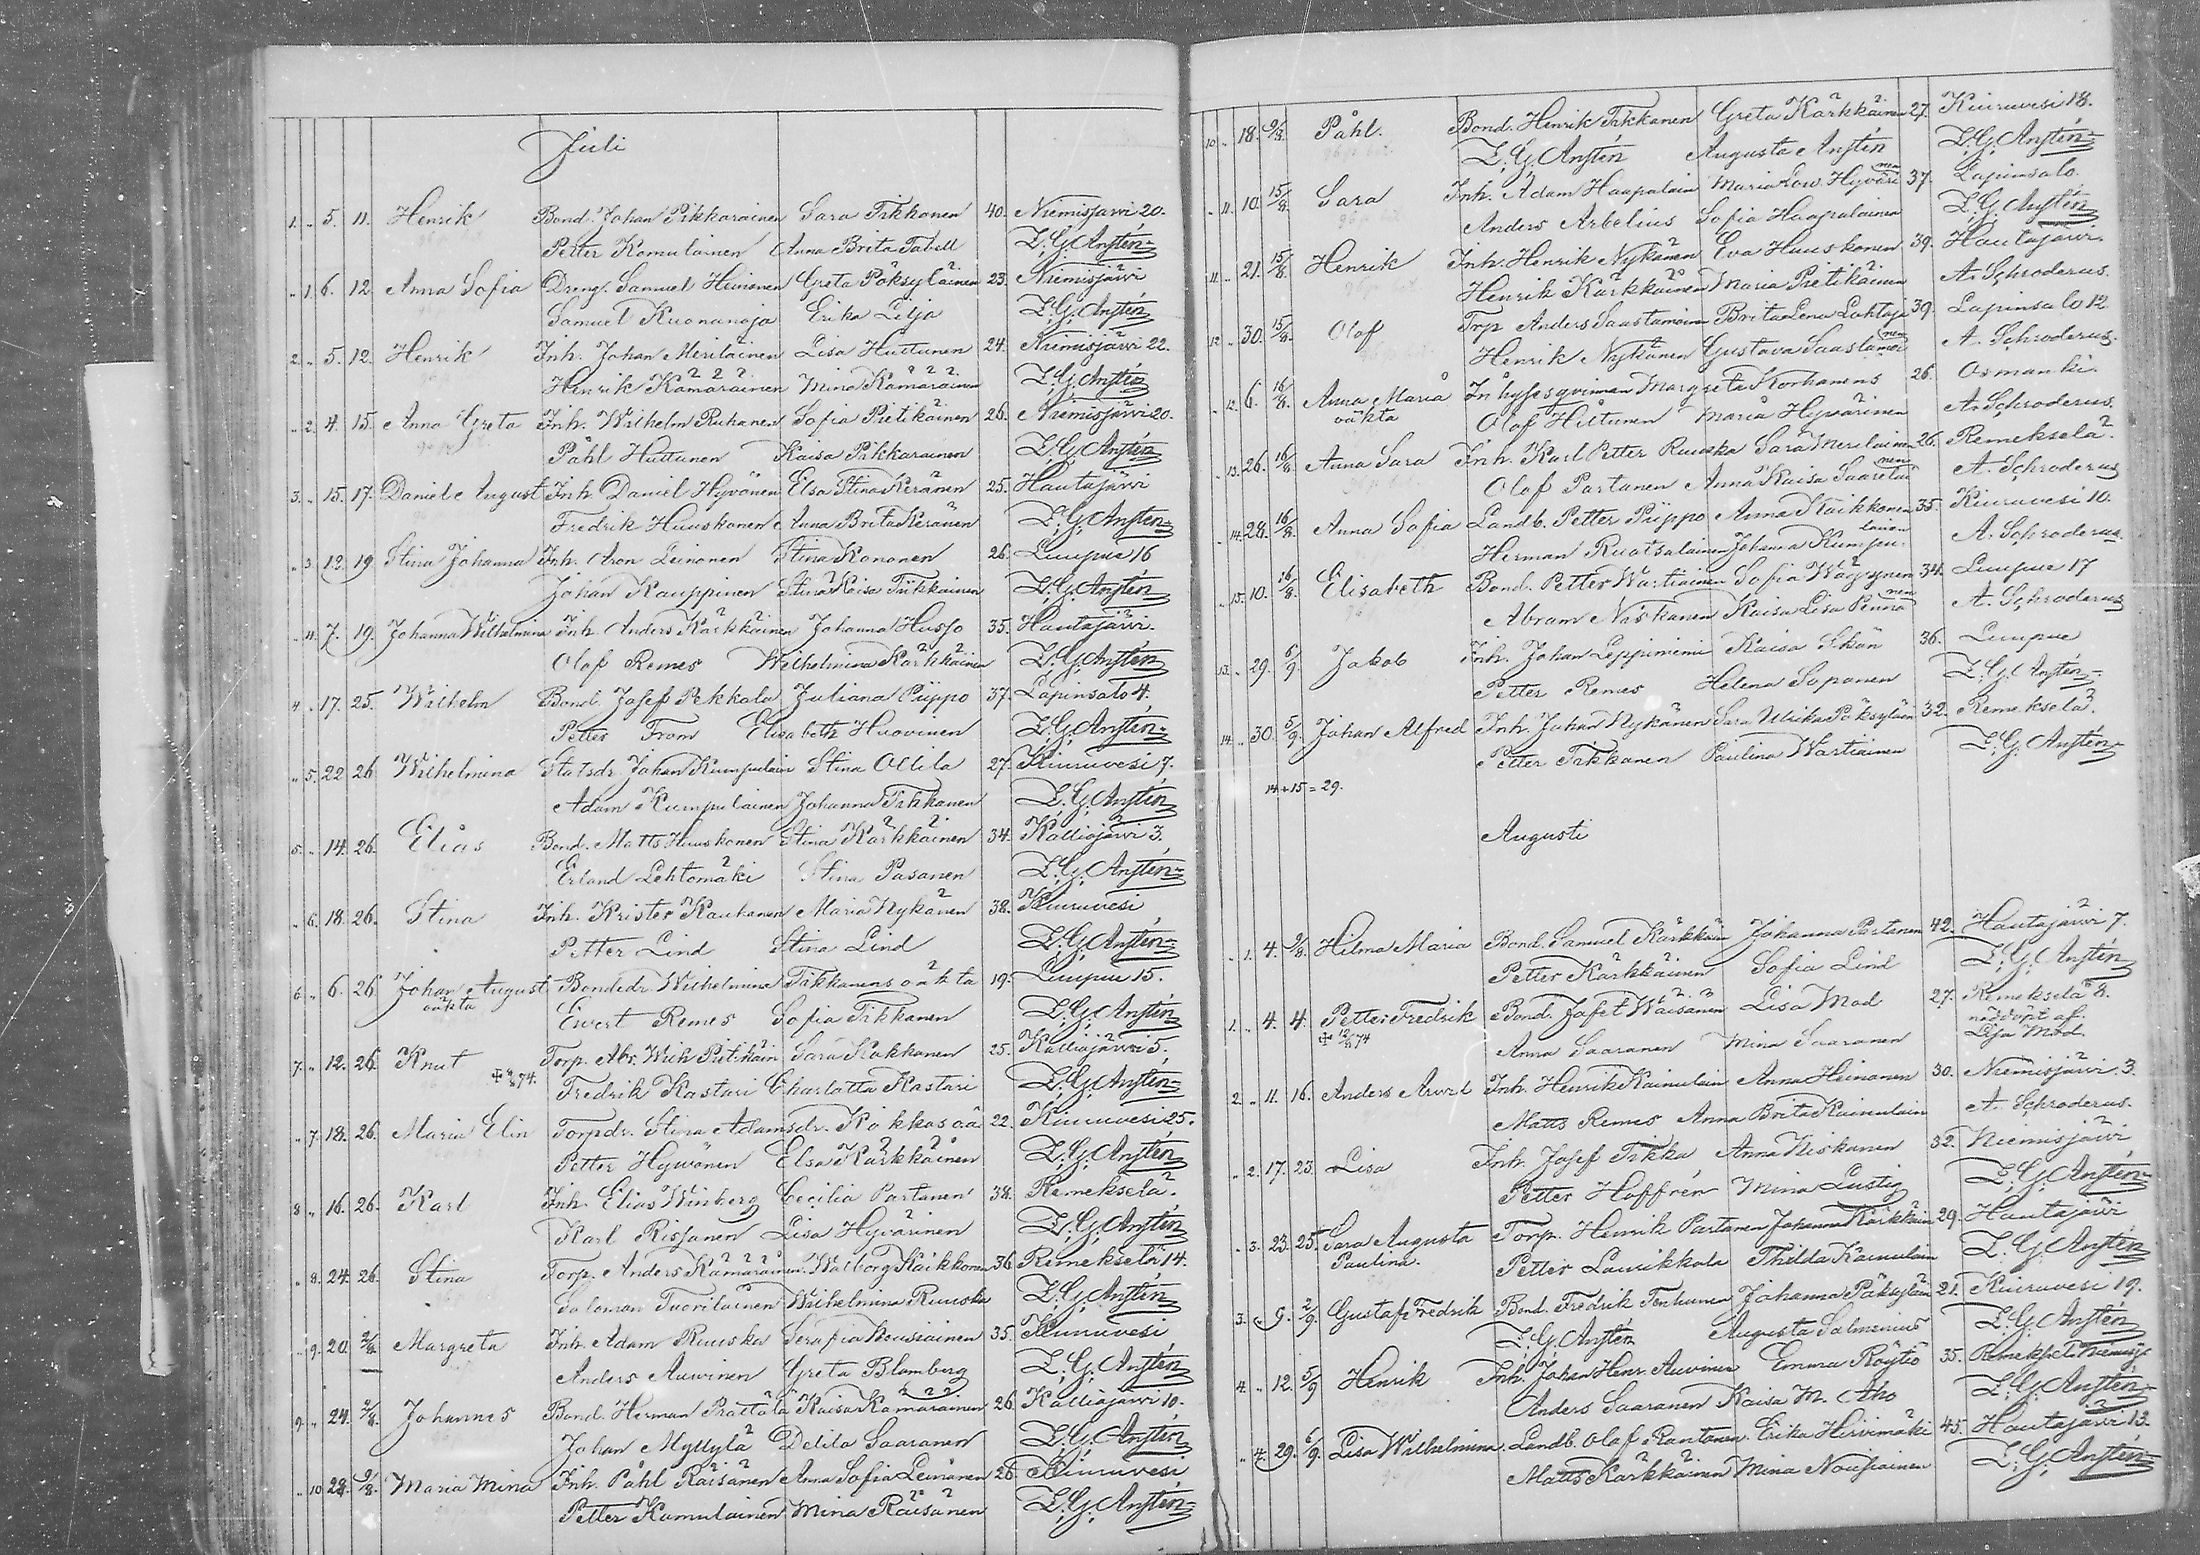 Juli
1. " 5. 11. Henrik Bond. Johan Pikkarainen Sara Tikkanen 40. Niemisjärvi 20.
Petter Komulainen Anna Brita Tabell L. G. Anstén
" 1. 6. 12. Anna Sofia Dreng. Samuel Heinonen Greta Päksyläinen 23. Niemisjärvi
Samuel Kuonanoja Erika Lilja L. G. Anstén
2. " 5. 12. Henrik Inh. Johan Meriläinen Lisa Huttunen 24. Niemisjärvi 22.
Henrik Kämäräinen Mina Kämäräinen L. G. Anstén
" 2. 4. 15. Anna Greta Inh. Wilhelm Ruhanen Sofia Pietikäinen 26. Niemisjärvi 20.
Påhl Huttunen Kaisa Pikkarainen L. G. Anstén
3. " 15. 17. Daniel August Inh. Daniel Hyvönen Elsa Stina Keränen 25. Hautajärvi
Fredrik Huuskonen Anna Brita Keränen L. G. Anstén
" 3. 12. 19. Stina Johanna Inh. Aron Leinonen Stina Kononen 26. Luupue 16
Johan Kauppinen Stina Kaisa Tikkainen L. G. Anstén
" 4. 7. 19. Johanna Wilhelmina Inh. Anders Kärkkäinen Johanna Husso 35. Hautajärvi.
Olof Remes Wilhelmina Kärkkäinen L. G. Anstén
4 " 17. 25. Wilhelm Bond. Josef Pekkala Juliana Piippo 37. Lapinsalo 4.
Petter From Elisabeth Huovinen L. G. Anstén
" 5. 22. 26. Wilhelmina Statsdr. Johan Kumpulain Stina Ollila 27. Kiuruvesi 7.
Adam Kumpulainen Johanna Tikkanen L. G. Anstén
5. " 14. 26. Elias Bond. Matts Huuskonen Stina Kärkkäinen 34. Kalliojärvi 3.
Erland Lehtomäki Stina Pasanen L. G. Anstén
" 6. 18. 26. Stina Inh. Krister Kauhanen Maria Nykänen 38. Kiuruvesi
Petter Lind Stina Lind L. G. Anstén
6. " 6. 26. Johan August Bondedr. Wilhelmina Tikkanens oäkta 19. Luupue 15.
oäkta Ewert Remes Sofia Tikkanen L. G. Anstén
7. " 12. 26. Knut Torp. Abr. Wilh Pietikäin Sara Kokkonen 25. Kalliojärvi 5.
Fredrik Kastari Charlotta Kastari L. G. Anstén
" 7. 18. 26. Maria Elin Torpdr. Stina Adamsdr. Kökkos oä. 22. Kiuruvesi 25.
Petter Hyvönen Elsa Kärkkäinen L. G. Anstén
8 " 16. 26. Karl Inh. Elias Winberg Cecilia Partanen 38. Remekselä.
Karl Rissanen Lisa Hyvärinen L. G. Anstén
" 8. 24. 26. Stina Torp. Anders Kämäräinen Walborg Kaikkonen 36. Remekselä 14.
Salomon Tuorilainen Wilhelmina Ruuska L. G. Anstén
" 9. 20. 2/8. Margreta Inh. Adam Ruuska Serafia Nousiainen 35. Kiuruvesi
Anders Auvinen Greta Blomberg L. G. Anstén
9. " 24. 2/8. Johannes Bond. Herman Prättälä Kaisa Kämäräinen 26. Kalliojärvi 10.
Johan Myllylä Delila Saaranen L. G. Anstén
" 10 28. 9/8. Maria Mina Inh. Påhl Räisänen Anna Sofia Leinänen 26. Kiuruvesi
Petter Komulainen Mina Räisänen L. G. Anstén
10 " 18. 9/8. Påhl. Bond. Henrik Tikkanen Greta Kärkkäinen 27. Kiuruvesi 18.
L. G. Anstén Augusta Anstén L. G. Anstén
" 11. 10. 15/8. Sara Inh. Adam Haapalain Maria Lov. Hyvärinen 37. Lapinsalo
Anders Arbelius Sofia Haapalainen L. G. Anstén
11 " 21. 15/8. Henrik Inh. Henrik Nykänen Eva Huuskonen 39. Hautajärvi.
Henrik Kärkkäinen Maria Pietikäinen A. Schroderus.
12 " 30. 15/8. Olof Trp Anders Saastamoinen Brita Lena Luktaja 39. Lapinsalo 12
Henrik Nykänen Gustava Saastamoinen A. Schroderus.
" 12. 6. 16/8. Anna Maria Inhysesqvinnan Margreta Korhonens 26. Osmanki.
oäkta Olof Hiltunen Maria Hyvärinen A. Schroderus.
" 13. 26. 16/8. Anna Sara Inh. Karl Petter Ruuska Sara Meriläinen 26. Remekselä.
Olof Partanen Anna Kaisa Saarelainen A. Schroderus
" 14. 28. 16/8. Anna Sofia Landb. Petter Piippo Anna Kaikkonen 35. Kiuruvesi 10.
Herman Ruotsalainen Johanna Kumpulainen A. Schroderus.
" 15. 10. 16/8. Elisabeth Bond. Petter Wartiainen Sofia Wäyrynen 34. Luupue 17
Abram Näskanen Kaisa Lisa Pennanen A. Schroderus
13. " 29. 6/9. Jakob Inh. Johan Leppiniemi Kaisa Skön 36. Luupue
Petter Remes Helena Saponen L. G. Anstén
14. " 30. 5/9. Johan Alfred Inh. Johan Nykänen Sara Ulrika Päksyläin 32. Remekselä.
Petter Tikkanen Paulina Wartiainen L. G. Anstén
14 + 15 = 29.
Augusti
" 1. 4. 9/8. Hilma Maria Bond. Samuel Kärkkäin Johanna Partanen 42. Hautajärvi 7.
Petter Kärkkäinen Sofia Lind L. G. Anstén
1. " 4. 4. Petter Fredrik Bond. Jafet Wäisänen Lisa Mod 27. Remekselä 8.
Anna Saaranen Mina Saaranen nöddöpt af. Lisa Mod.
2. " 11. 16. Anders Arvid Inh. Henrik Kainulain Anna Heinonen 30. Niemisjärvi 3.
Matts Remes Anna Brita Kainulain A. Schroderus.
" 2. 17. 23. Lisa Inh. Josef Tikka Anna Niskanen 32. Niemisjärvi
Petter Hoffrén Mina Lustig L. G. Anstén
" 3. 23. 25. Sara Augusta Torp. Henrik Partanen Johanna Kärkkäin 29. Hautajärvi
Paulina. Petter Laurikkala Thilda Kainulain L. G. Anstén
3. " 9. 2/9. Gustaf Fredrik Bond. Fredrik Tenhunen Johanna Päksyläin 21. Kiuruvesi 19.
L. G. Anstén Augusta Salmenius L. G. Anstén
4. " 12. 5/9 Henrik Inh. Johan Henr. Auvinen Emma Röytiö 35.
Anders Saaranen Kaisa M. Aho L. G. Anstén
" 4. 29. 6/9. Lisa Wilhelmina. Landb. Olof Rantanen Erika Hirvimäki 45. Hautajärvi 13.
Matts Kärkkäinen Mina Nousiainen L. G. Anstén